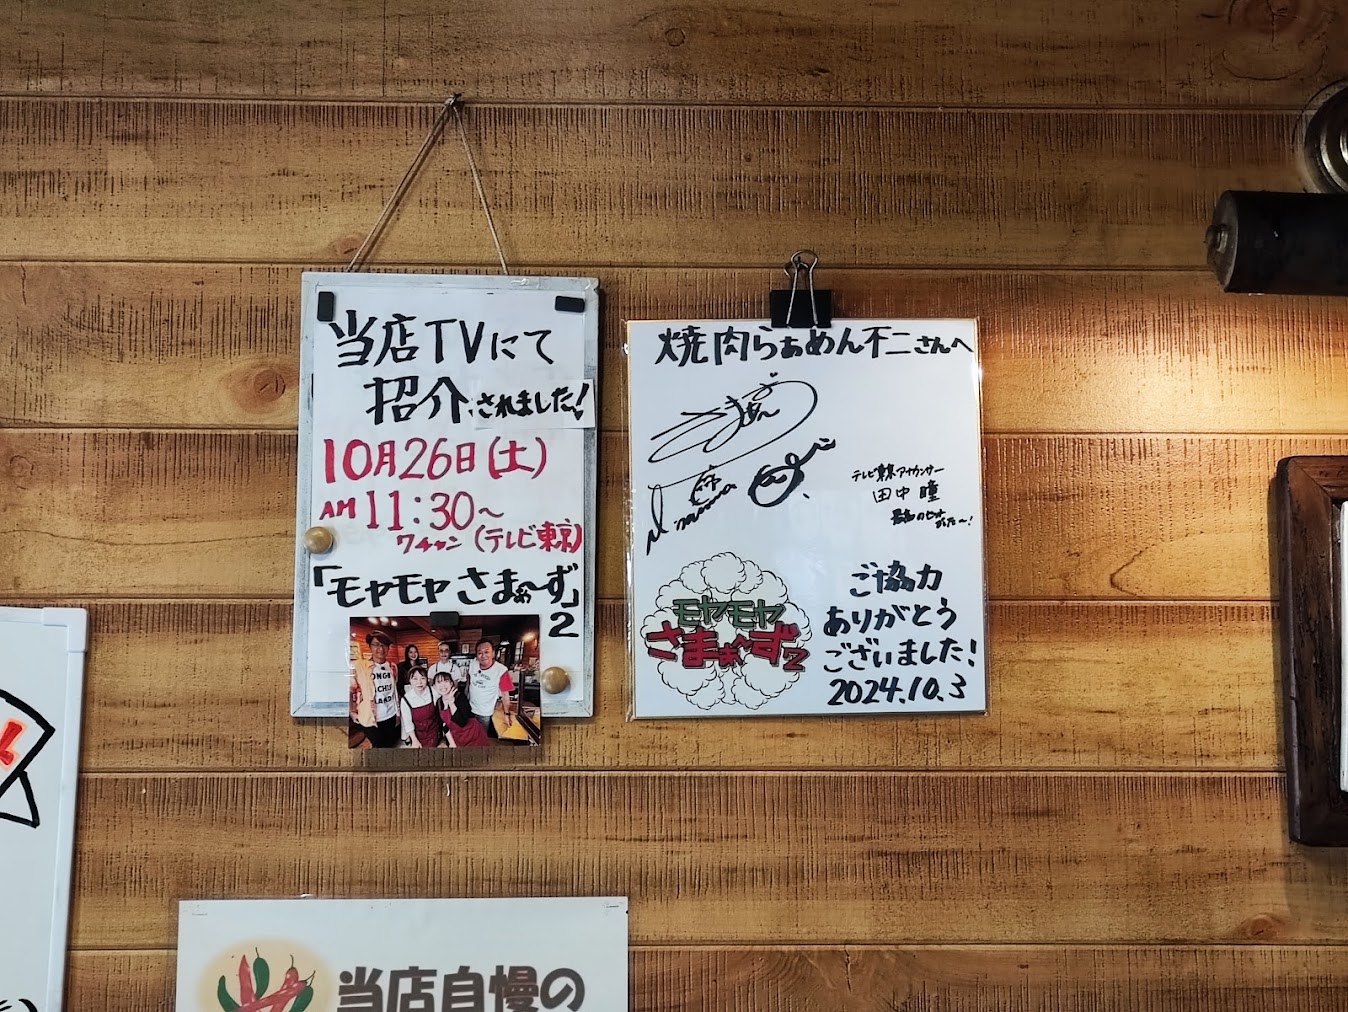 当店TVにて
紹介されました!
10月26日(土)
AM 11:30～
7チャン (テレビ東京)
「モヤモヤさまぁ～ず」
2
焼肉らぁめん不二さんへ
さまぁ～
テレビ東京アナウンサー
田中瞳
モヤモヤ
さまぁ～ず2
ご協力
ありがとう
ございました!
2024.10.3
当店自慢の